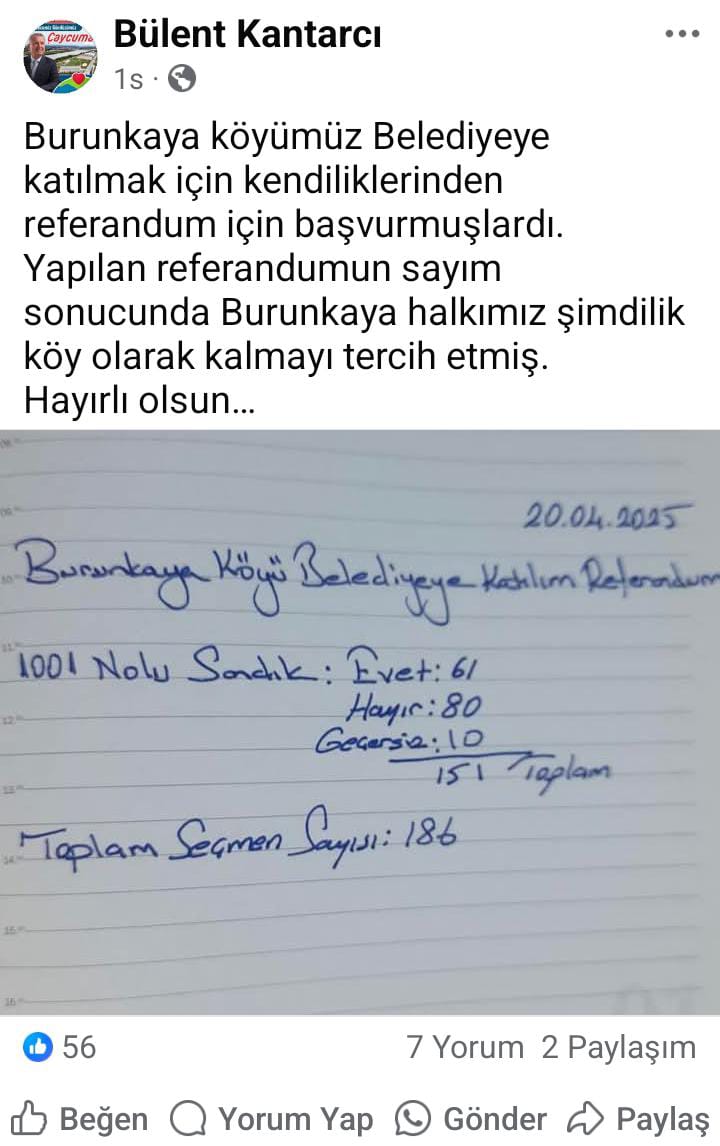 Bülent Kantarcı
1s ·
Burunkaya köyümüz Belediyeye
katılmak için kendiliklerinden
referandum için başvurmuşlardı.
Yapılan referandumun sayım
sonucunda Burunkaya halkımız şimdilik
köy olarak kalmayı tercih etmiş.
Hayırlı olsun...
20.04.2025
Burunkaya Köyü Belediyeye Katılım Referandum
1001 Nolu Sandık: Evet: 61
Hayır: 80
Geçersiz: 10
151 Toplam
Toplam Seçmen Sayısı: 186
56
7 Yorum 2 Paylaşım
Beğen Yorum Yap Gönder Paylaş